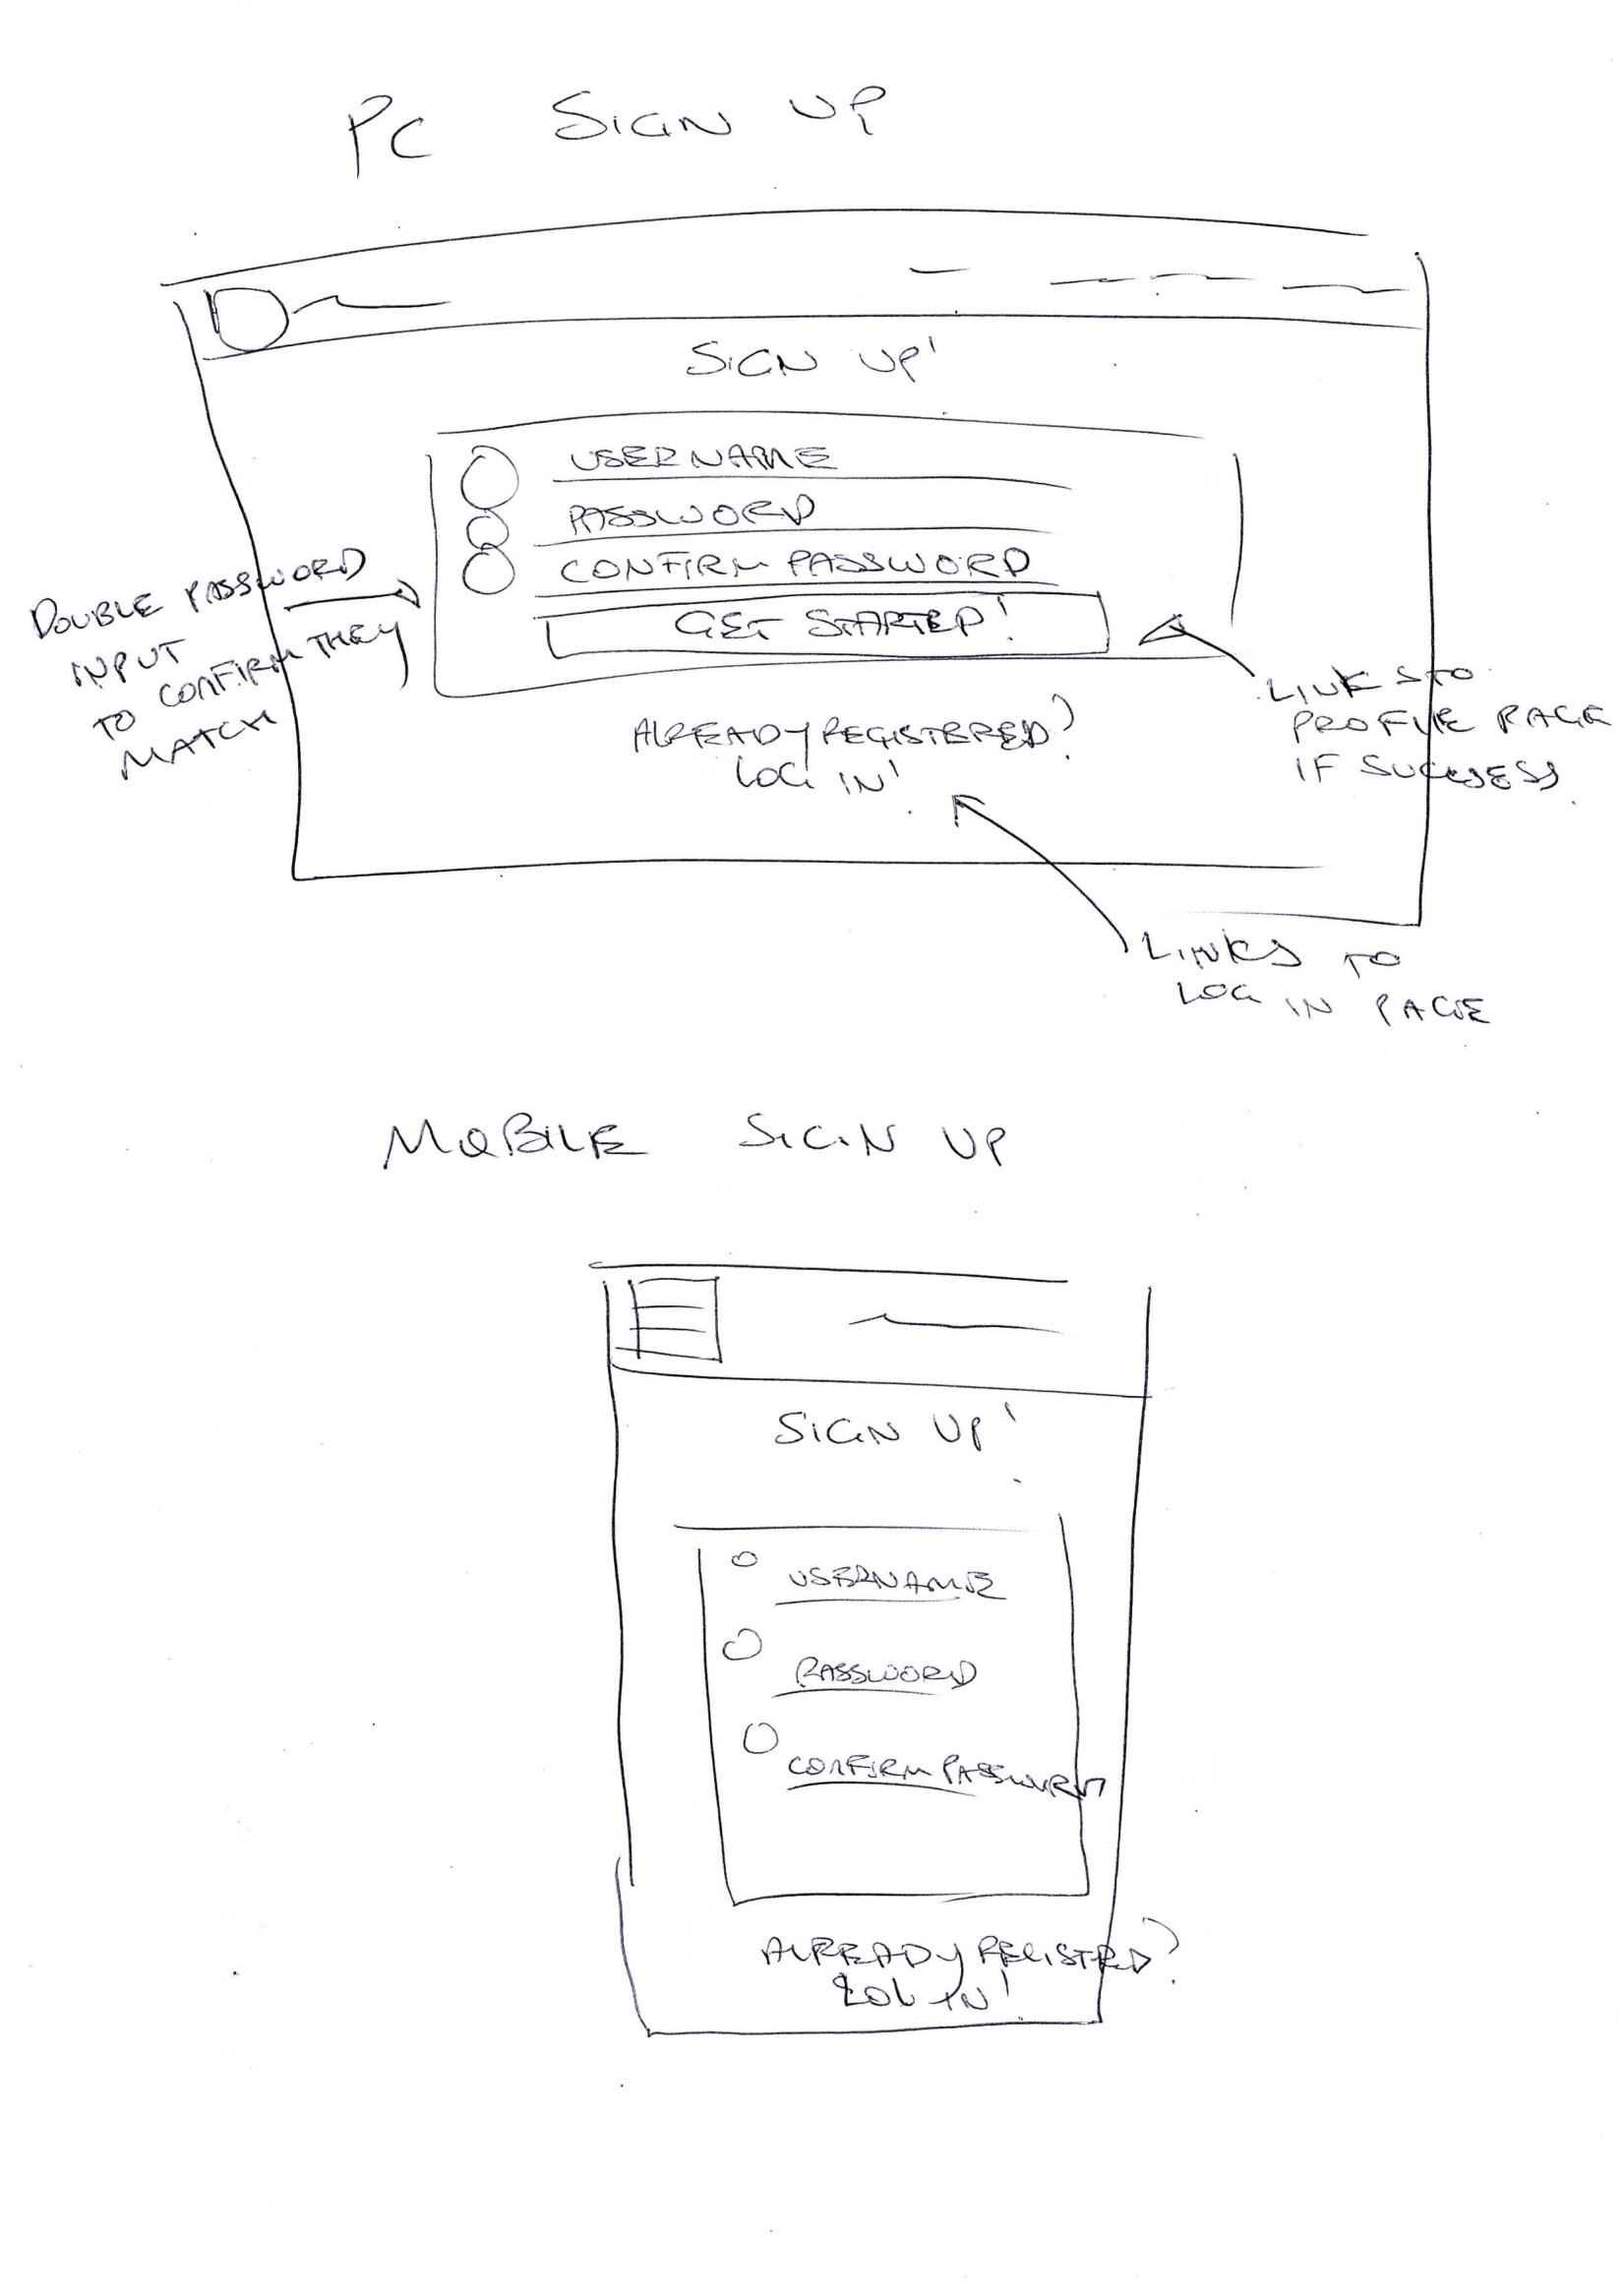 PC SIGN UP
SIGN UP!
USERNAME
PASSWORD
CONFIRM PASSWORD
GET STARTED!
DOUBLE PASSWORD
INPUT
TO CONFIRM THEY
MATCH
LINKS TO
PROFILE PAGE
IF SUCCESS
ALREADY REGISTERED?
LOG IN!
LINKS TO
LOG IN PAGE
MOBILE SIGN UP
SIGN UP!
USERNAME
PASSWORD
CONFIRM PASSWORD
ALREADY REGISTRD?
LOG IN!